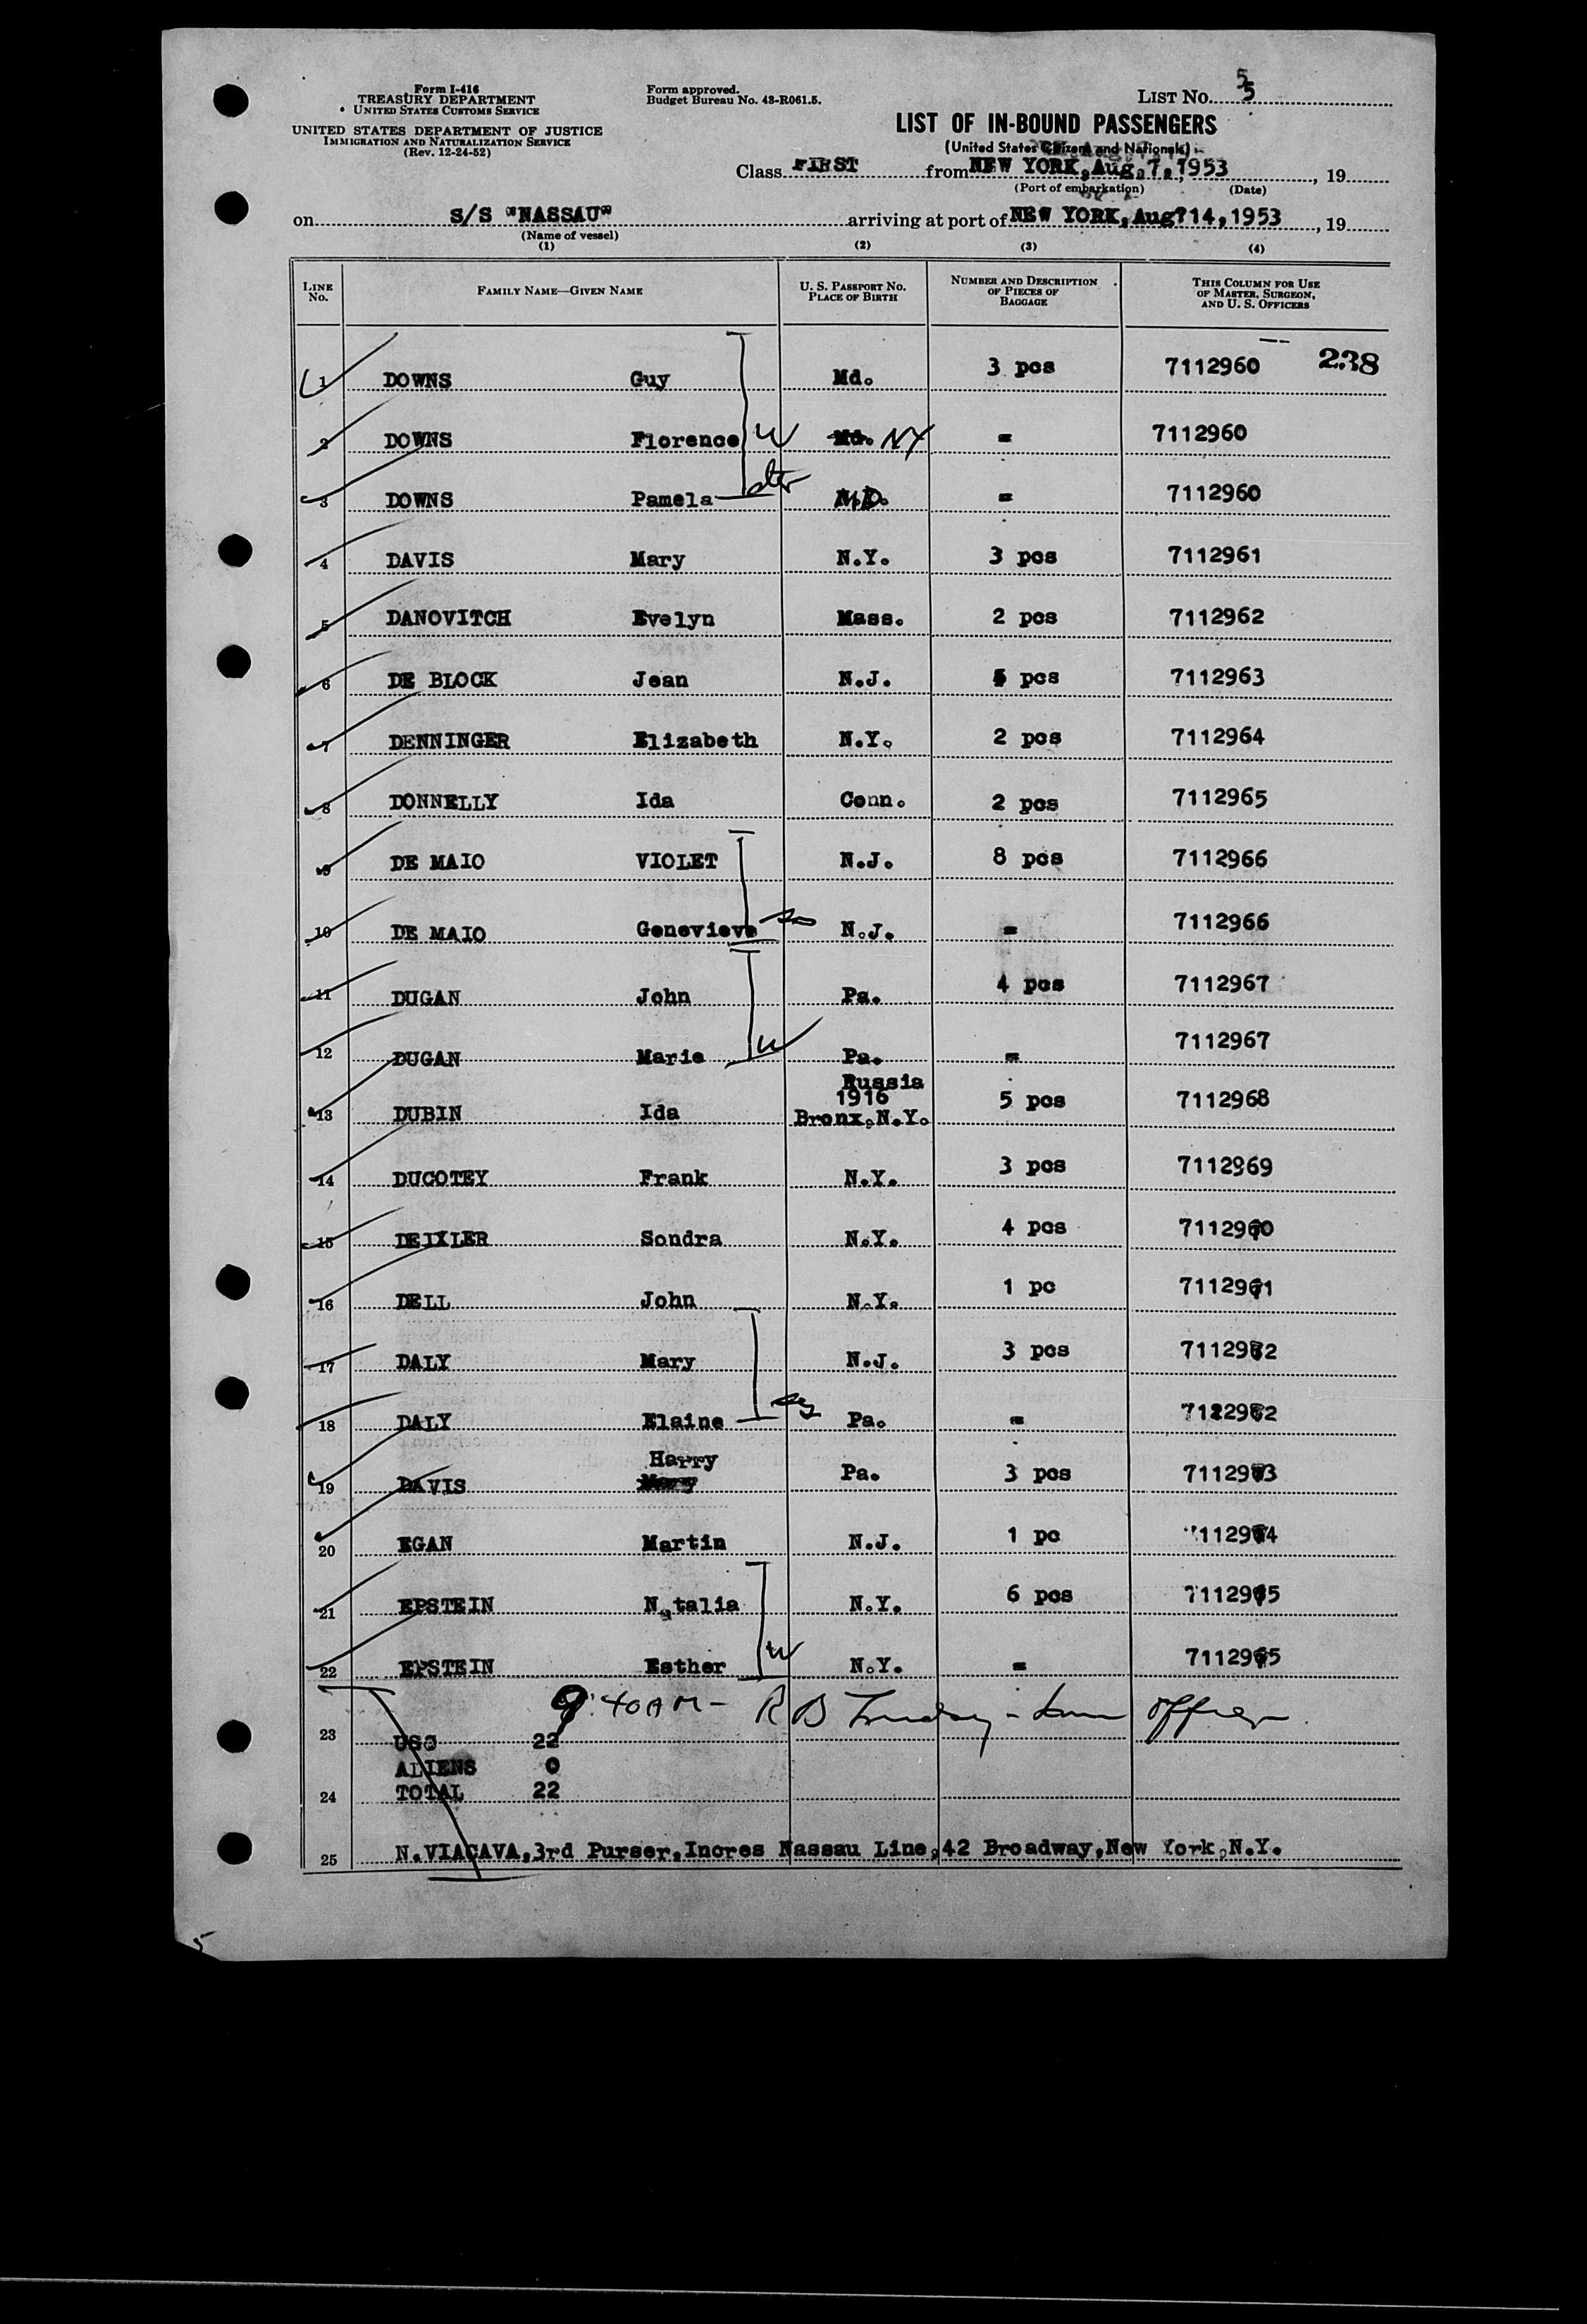 Form I-416
TREASURY DEPARTMENT
UNITED STATES CUSTOMS SERVICE
UNITED STATES DEPARTMENT OF JUSTICE
IMMIGRATION AND NATURALIZATION SERVICE
(Rev. 12-24-52)
Form approved.
Budget Bureau No. 43-R061.5.
LIST NO. 5
LIST OF IN-BOUND PASSENGERS
(United States Citizens and Nationals)
Class FIRST from NEW YORK, Aug. 7, 1953, 19
(Port of embarkation) (Date)
on S/S "NASSAU" arriving at port of NEW YORK, Aug? 14, 1953, 19
(Name of vessel)
(1) (2) (3) (4)
LINE NO. FAMILY NAME—GIVEN NAME U. S. PASSPORT NO. PLACE OF BIRTH NUMBER AND DESCRIPTION OF PIECES OF BAGGAGE THIS COLUMN FOR USE OF MASTER, SURGEON, AND U. S. OFFICERS
1 DOWNS Guy Md. 3 pcs 7112960 238
2 DOWNS Florence W Md. NY = 7112960
3 DOWNS Pamela dtr MD. = 7112960
4 DAVIS Mary N.Y. 3 pcs 7112961
5 DANOVITCH Evelyn Mass. 2 pcs 7112962
6 DE BLOCK Jean N.J. pcs 7112963
7 DENNINGER Elizabeth N.Y. 2 pcs 7112964
8 DONNELLY Ida Conn. 2 pcs 7112965
9 DE MAIO VIOLET N.J. 8 pcs 7112966
10 DE MAIO Genevieve N.J. = 7112966
11 DUGAN John Pa. 4 pcs 7112967
12 DUGAN Marie W Pa. = 7112967
13 DUBIN Ida Russia 1916 Bronx,N.Y. 5 pcs 7112968
14 DUCOTEY Frank N.Y. 3 pcs 7112969
15 DEIXLER Sondra N.Y. 4 pcs 7112970
16 DELL John N.Y. 1 pc 7112971
17 DALY Mary N.J. 3 pcs 7112972
18 DALY Elaine Pa. = 7122972
19 DAVIS Harry Mary Pa. 3 pcs 7112973
20 EGAN Martin N.J. 1 pc 7112974
21 EPSTEIN Natalia N.Y. 6 pcs 7112975
22 EPSTEIN Esther W N.Y. = 7112975
9:40 AM - R B
23 USC 22
ALIENS 0
24 TOTAL 22
25 N.VIACAVA,3rd Purser,Incres Nassau Line,42 Broadway,New York,N.Y.
5